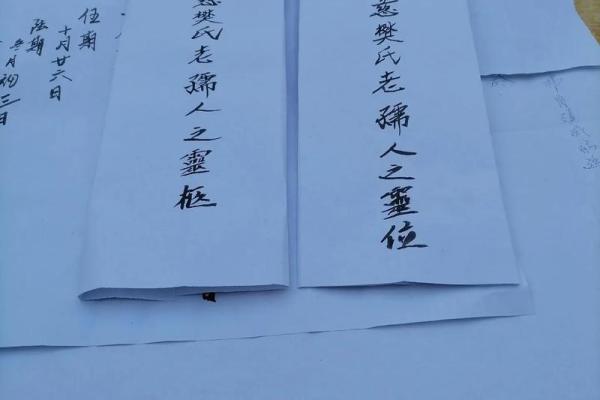 慈樊氏老孺人之靈位
慈樊氏老孺人之靈柩
伍期
十月廿六日
陆期
冬月初三日